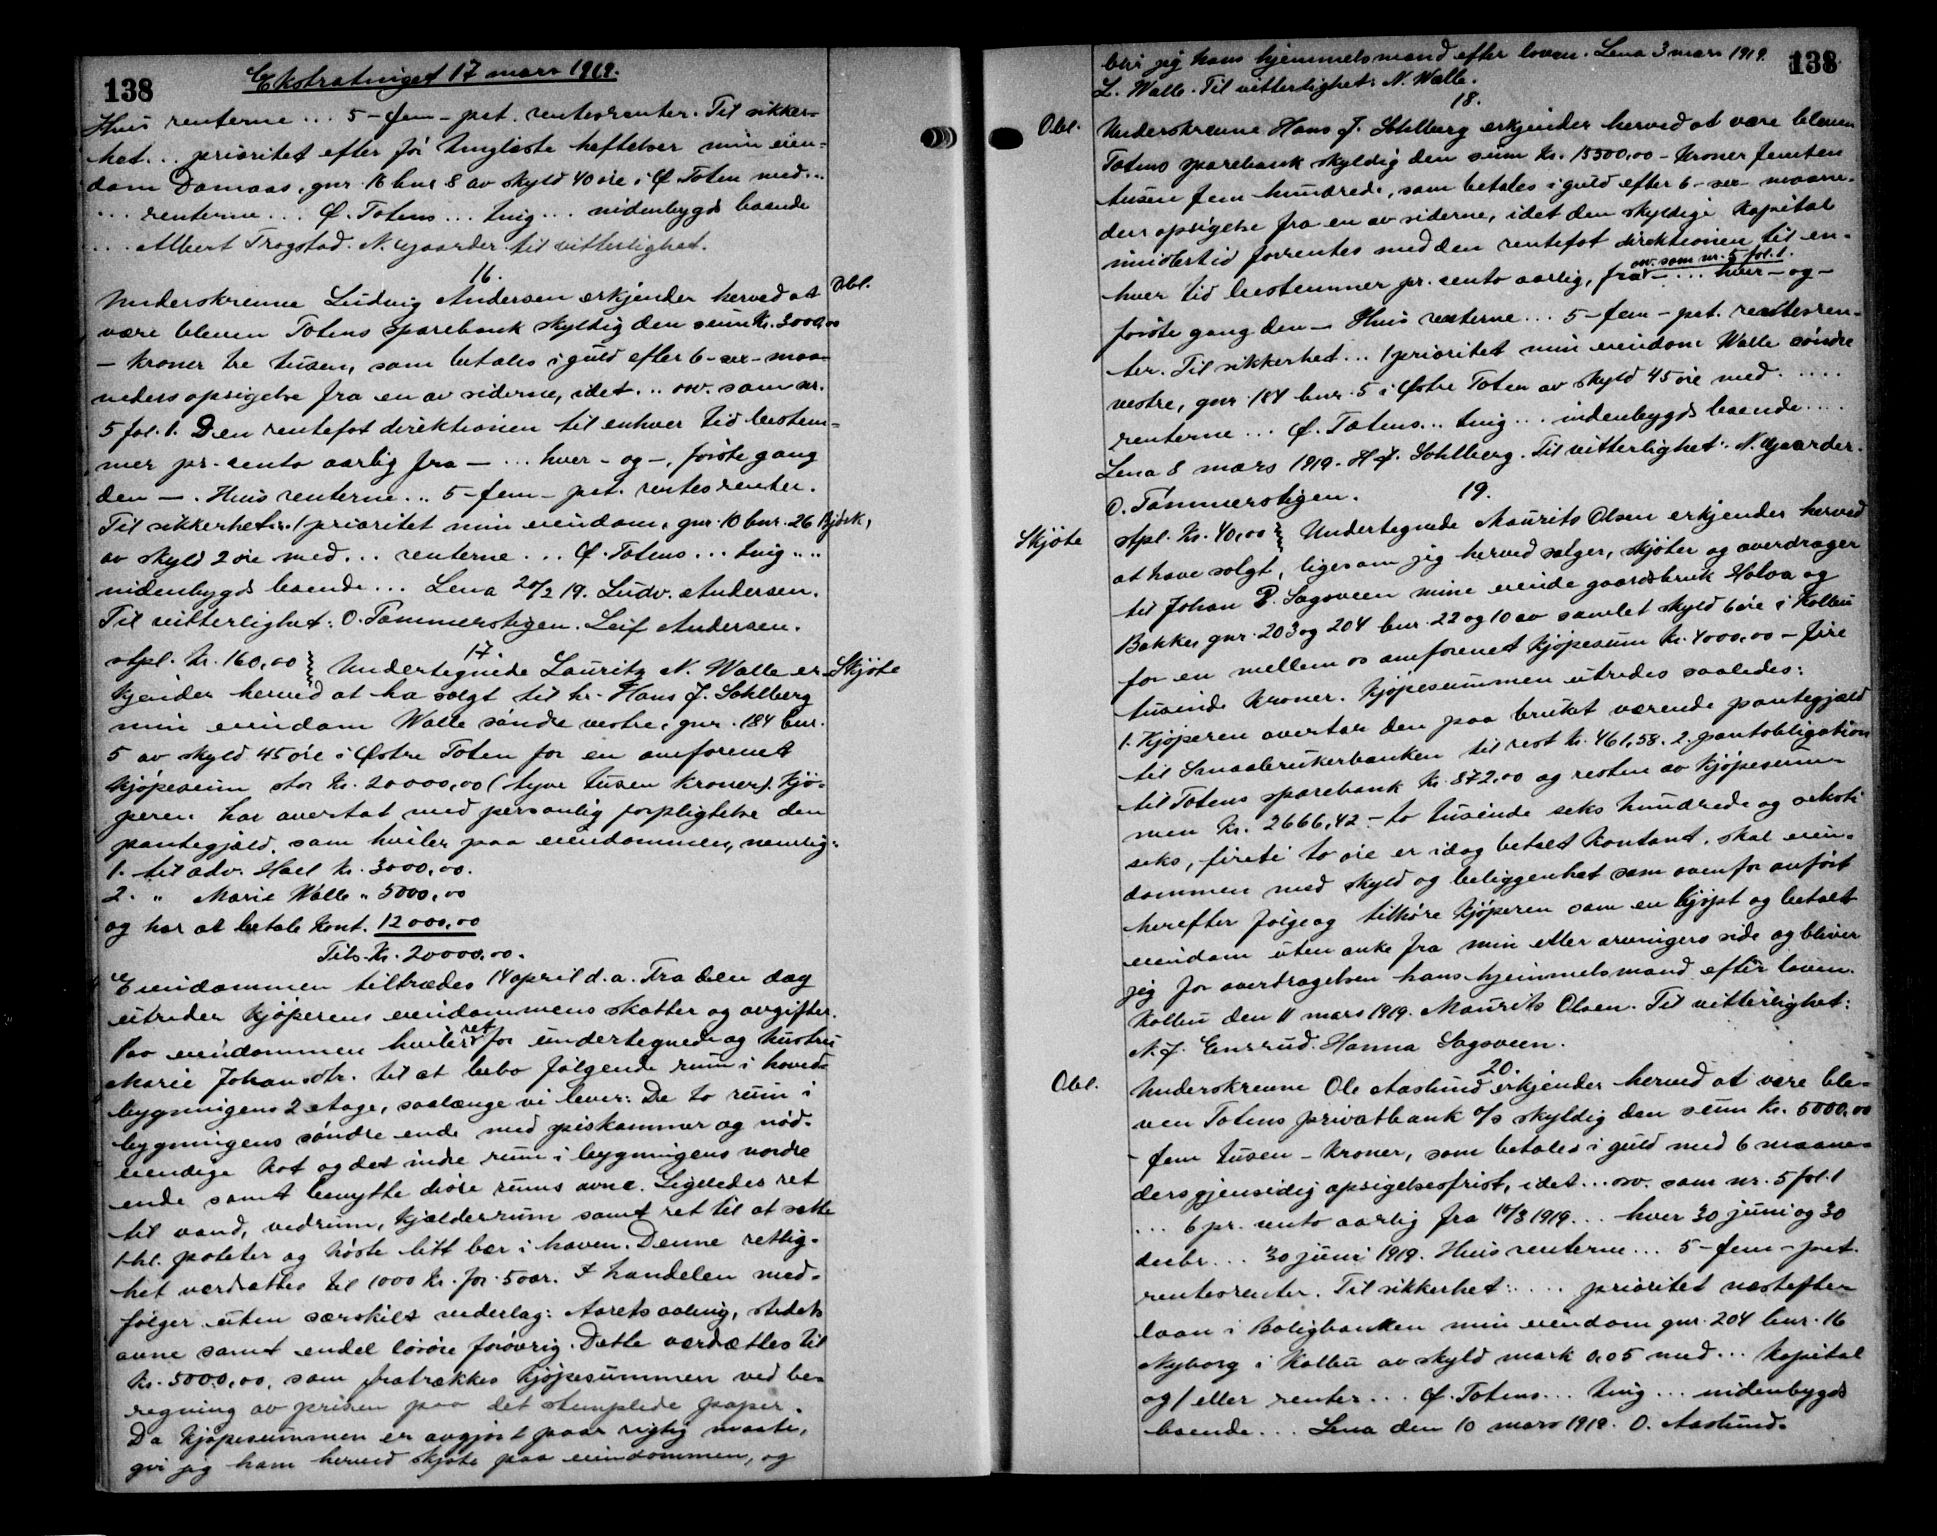 138
Ekstratinget 17 mars 1919.
Hvis renterne ... 5 - fem - pct. rentesrenter. Til sikker-
het... prioritet efter før tinglæste heftelser min eien-
dom Damaas, gnr. 16 bnr 8 av skyld 40 øre i Ø Toten med...
... renterne ... Ø. Totens ... ting ... nidenbygds boende
.... Albert Trogstad. N. Gaarder til vitterlighet.
16.
Obl.
Underskrevne Ludvig Andersen erkjender herved at
være bleven Totens sparebank skyldig den sum kr. 3000,00
- kroner tre tusen, som betales i guld efter 6 - sex - maa-
neders opsigelse fra en av siderne, idet... osv. som nr.
5 fol. 1. Den rentefot direktionen til enhver tid bestem-
mer pr. cento aarlig fra - ... hver - og -, første gang
den - . Hvis renterne ... 5 - fem - pct. rentesrenter.
Til sikkerhet... 1 prioritet min eiendom, gnr. 10 bnr. 26
av skyld 2 øre med... renterne ... Ø. Totens ... ting ....
nidenbygds boende ... Lena 20/2 19. Ludv. Andersen.
Til vitterlighet: O. Tømmerstigen. Leif Andersen.
17.
Skjøte
stpl. kr. 160,00 Undertegnede Lauritz N. Walle er-
kjender herved at ha solgt til hr. Hans J. Sohlberg
min eiendom Walle søndre vestre, gnr. 184 bnr.
5 av skyld 45 øre i Østre Toten for en omforenet
kjøpesum stor kr. 20000,00 (tyve tusen kroner). Kjø-
peren har overtat med personlig forpligtelse den
pantegjæld, som hviler paa eiendommen, nemlig:
1. til adv. Hoel kr. 3000,00.
2. " Marie Walle " 5000,00
og har at betale kont. 12000,00
Tils. kr. 20000,00.
Eiendommen tiltrædes 14 april d.a. Fra den dag
utreder kjøperen eiendommens skatter og avgifter.
Paa eiendommen hviler ret for undertegnede og hustru
Marie Johansdtr. til at bebo følgende rum i hoved-
bygningens 2 etage, saalænge vi lever: De to rum i
bygningens søndre ende med piskammer og nød-
vendige kot og det indre rum i bygningens nordre
ende samt benytte disse rums ovne. Ligeledes ret
til vand, vedrum, kjælderrum samt ret til at sætte
1 hl. poteter og høste litt bær i haven. Denne rettig-
het værdsættes til 1000 kr. for 5 aar. I handelen med-
følger uten særskilt vederlag: Aarets avling, stedets
ovne samt endel løsøre forøvrig. Dette værdsættes til
kr. 5000,00, som fratrækkes kjøpesummen ved be-
regning av prisen paa det stemplede papir.
Da kjøpesummen er avgjort paa rigtig maate,
gir jeg ham herved skjøte paa eiendommen, og
138
blir jeg hans hjemmelsmand efter loven. Lena 3 mars 1919.
L. Walle. Til vitterlighet: N. Walle.
18.
Obl.
Underskrevne Hans J. Sohlberg erkjender herved at være bleven
Totens sparebank skyldig den sum kr. 15500,00 - kroner femten
tusen fem hundrede, som betales i guld efter 6 - sex - maane-
ders opsigelse fra en av siderne, idet den skyldige kapital
imidlertid forrentes med den rentefot direktionen til en-
hver tid bestemmer pr. cento aarlig, fra osv. som nr. 5 fol. 1. - ... hver - og -
første gang den - Hvis renterne ... 5 - fem - pct. rentesren-
ter. Til sikkerhet ... 1 prioritet min eiendom Walle søndre
vestre, gnr. 184 bnr. 5 i Østre Toten av skyld 45 øre med .....
renterne ... Ø. Totens... ting ... nidenbygds boende ....
Lena 8 mars 1919. H. J. Sohlberg. Til vitterlighet: N. Gaarder.
O. Tømmerstigen.
19.
Skjøte
stpl. kr. 40,00 Undertegnede Maurits Olsen erkjender herved
at have solgt, ligesom jeg herved sælger, skjøter og overdrager
til Johan P. Sagsveen mine eiende gaardsbruk Holoa og
Bakken gnr. 203 og 204 bnr. 22 og 10 av samlet skyld 6 øre i Kolbu
for en mellem os omforenet kjøpesum kr. 4000,00 - fire
tusinde kroner. Kjøpesummen utredes saaledes:
1. Kjøperen overtar den paa bruket værende pantegjæld
til Smaabrukerbanken til rest kr. 461,58. 2. pantobligation
til Totens sparebank kr. 872,00 og resten av kjøpesum-
men kr. 2666,42 - to tusinde seks hundrede og seksti
seks, firti to øre er idag betalt kontant, skal eien-
dommen med skyld og beliggenhet som ovenfor anført
herefter følge og tilhøre kjøperen som en kjøpt og betalt
eiendom uten anke fra min eller arvingers side og bliver
jeg for overdragelsen hans hjemmelsmand efter loven.
Kolbu den 11 mars 1919. Maurits Olsen. Til vitterlighet:
N. J. Ensrud. Hanna Sagsveen.
20.
Obl.
Underskrevne Ole Aaslund erkjender herved at være ble-
ven Totens privatbank a/s skyldig den sum kr. 5000,00
- fem tusen - kroner, som betales i guld med 6 maane-
ders gjensidig opsigelsesfrist, idet ... osv. som nr. 5 fol. 1
... 6 pr. cento aarlig fra 10/3 1919 ... hver 30 juni og 30
decbr... 30 juni 1919. Hvis renterne ... 5 - fem - pct.
rentesrenter. Til sikkerhet: .... prioritet næst efter
laan i Boligbanken min eiendom gnr. 204 bnr. 16
Nyborg i Kolbu av skyld mark 0,05 med ... kapital
og / eller renter ... Ø. Totens ... ting ... nidenbygds
boende ... Lena den 10 mars 1919. O. Aaslund.